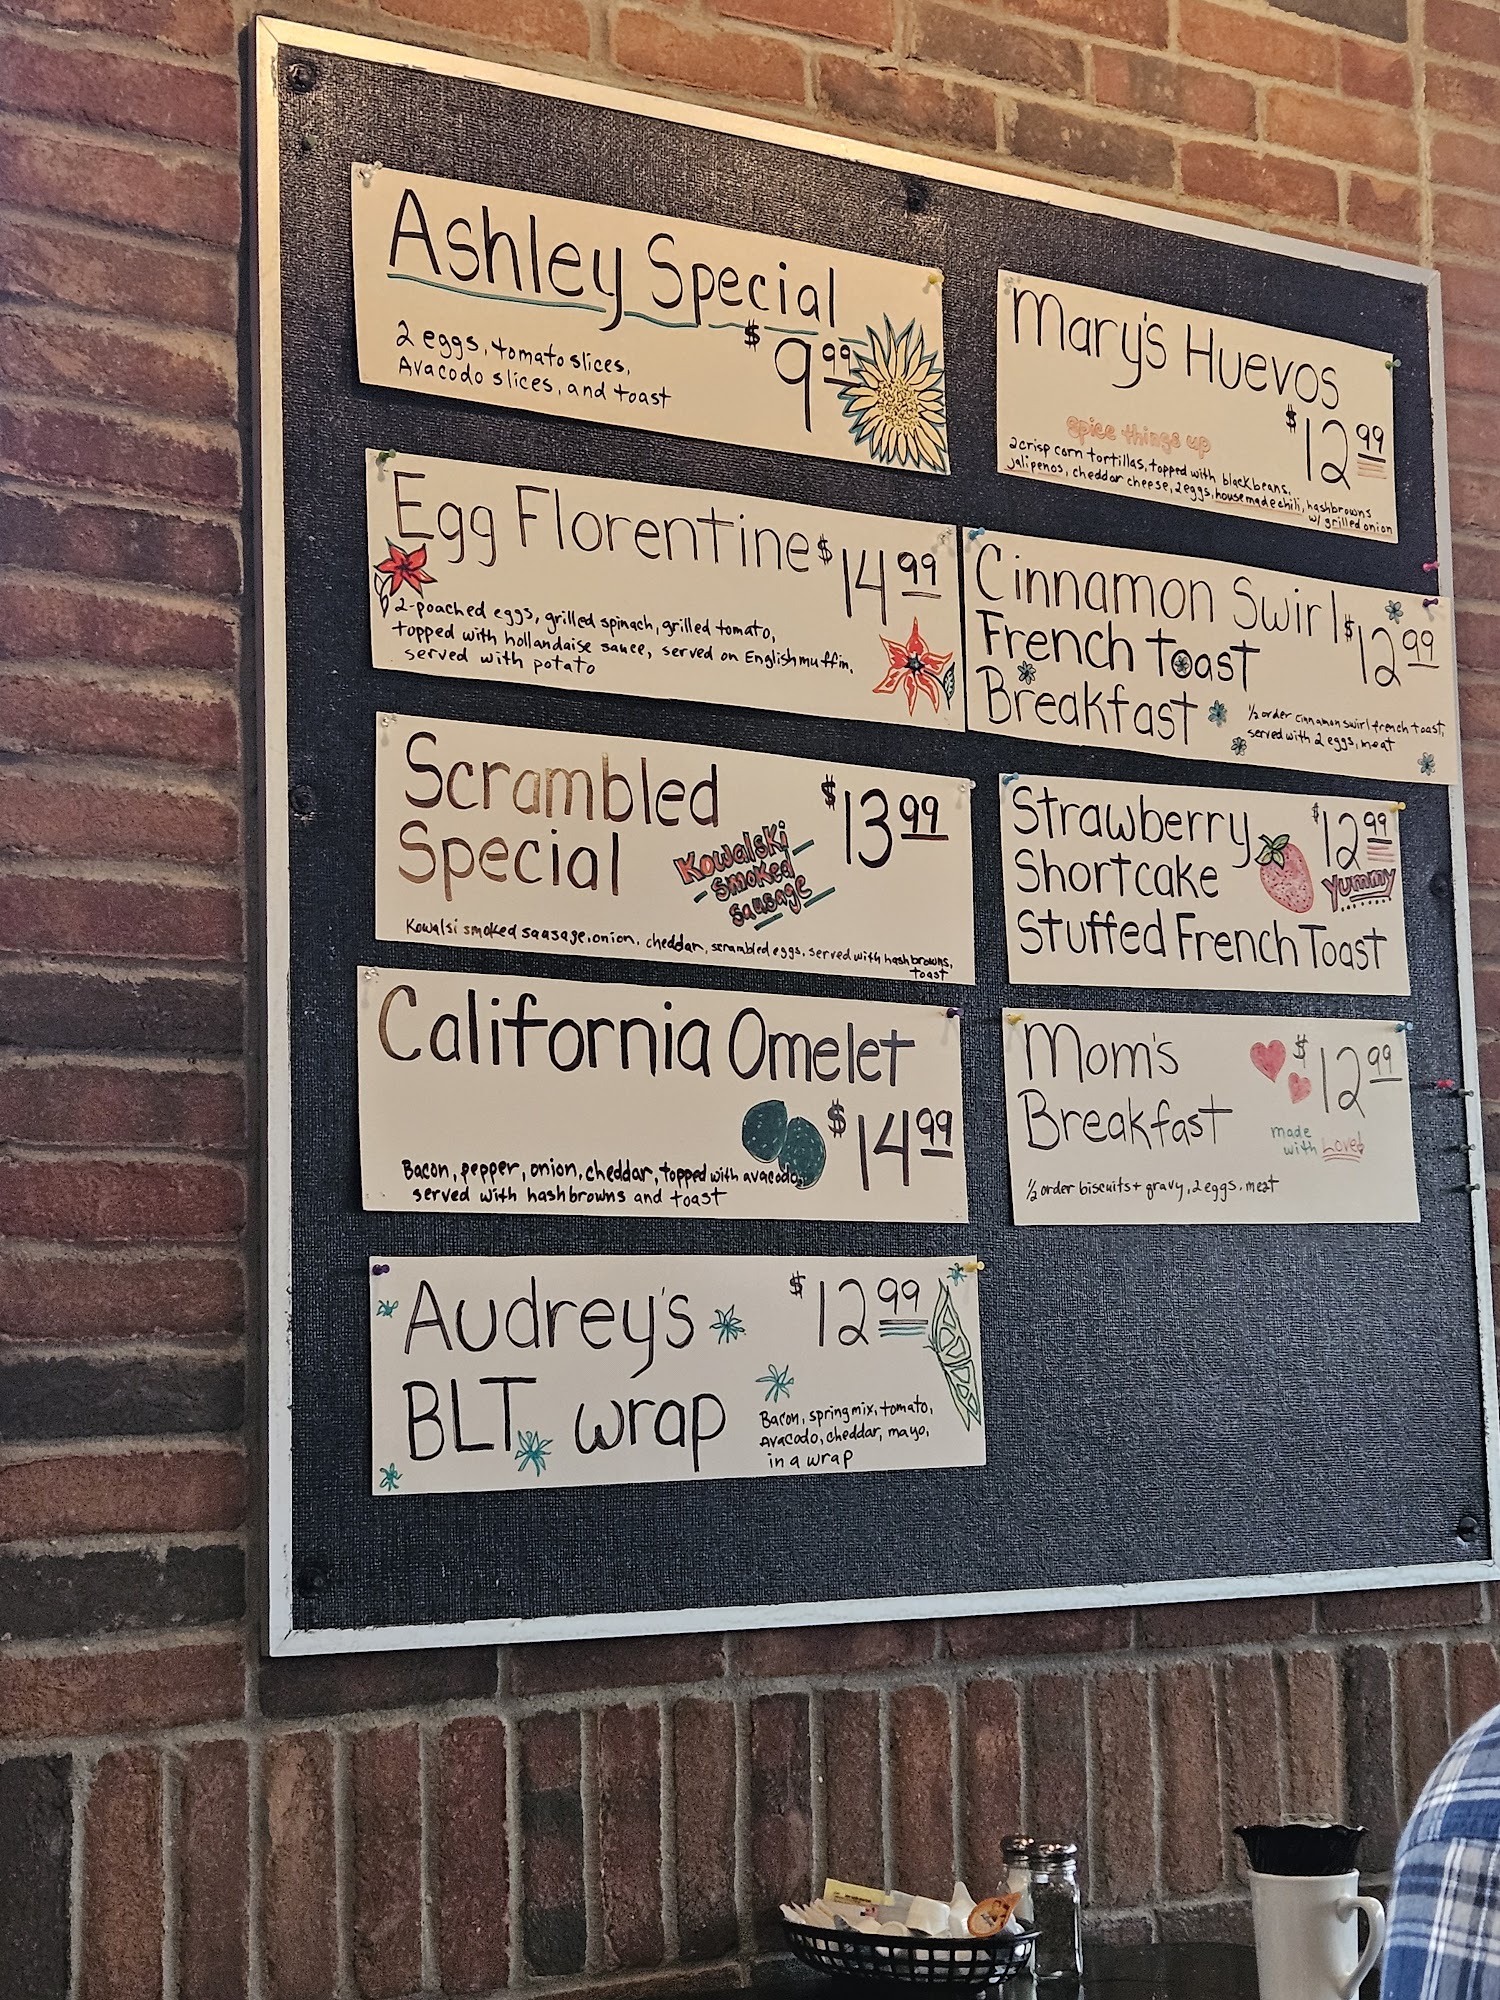 Ashley Special
$9.99
2 eggs, tomato slices,
Avacodo slices, and toast
Egg Florentine $14.99
2-poached eggs, grilled spinach, grilled tomato,
topped with hollandaise sauce, served on English muffin,
served with potato
Scrambled
Special
$13.99
Kowalski
smoked
sausage
Kowalsi smoked saasage, onion, cheddar, scrambled eggs, served with hashbrowns,
toast
California Omelet
$14.99
Bacon, pepper, onion, cheddar, topped with avacodo,
served with hashbrowns and toast
Audrey's
BLT wrap
$12.99
Bacon, spring mix, tomato,
Avacodo, cheddar, mayo,
in a wrap
Mary's Huevos
$12.99
spice things up
2 crisp corn tortillas, topped with black beans,
jalipenos, cheddar cheese, 2 eggs, housemade chili, hashbrowns
w/ grilled onion
Cinnamon Swirl
French toast
Breakfast
$12.99
1/2 order cinnamon swirl french toast,
served with 2 eggs, meat
Strawberry
Shortcake
Stuffed French Toast
$12.99
Yummy
Mom's
Breakfast
$12.99
made
with Love!
1/2 order biscuits + gravy, 2 eggs, meat